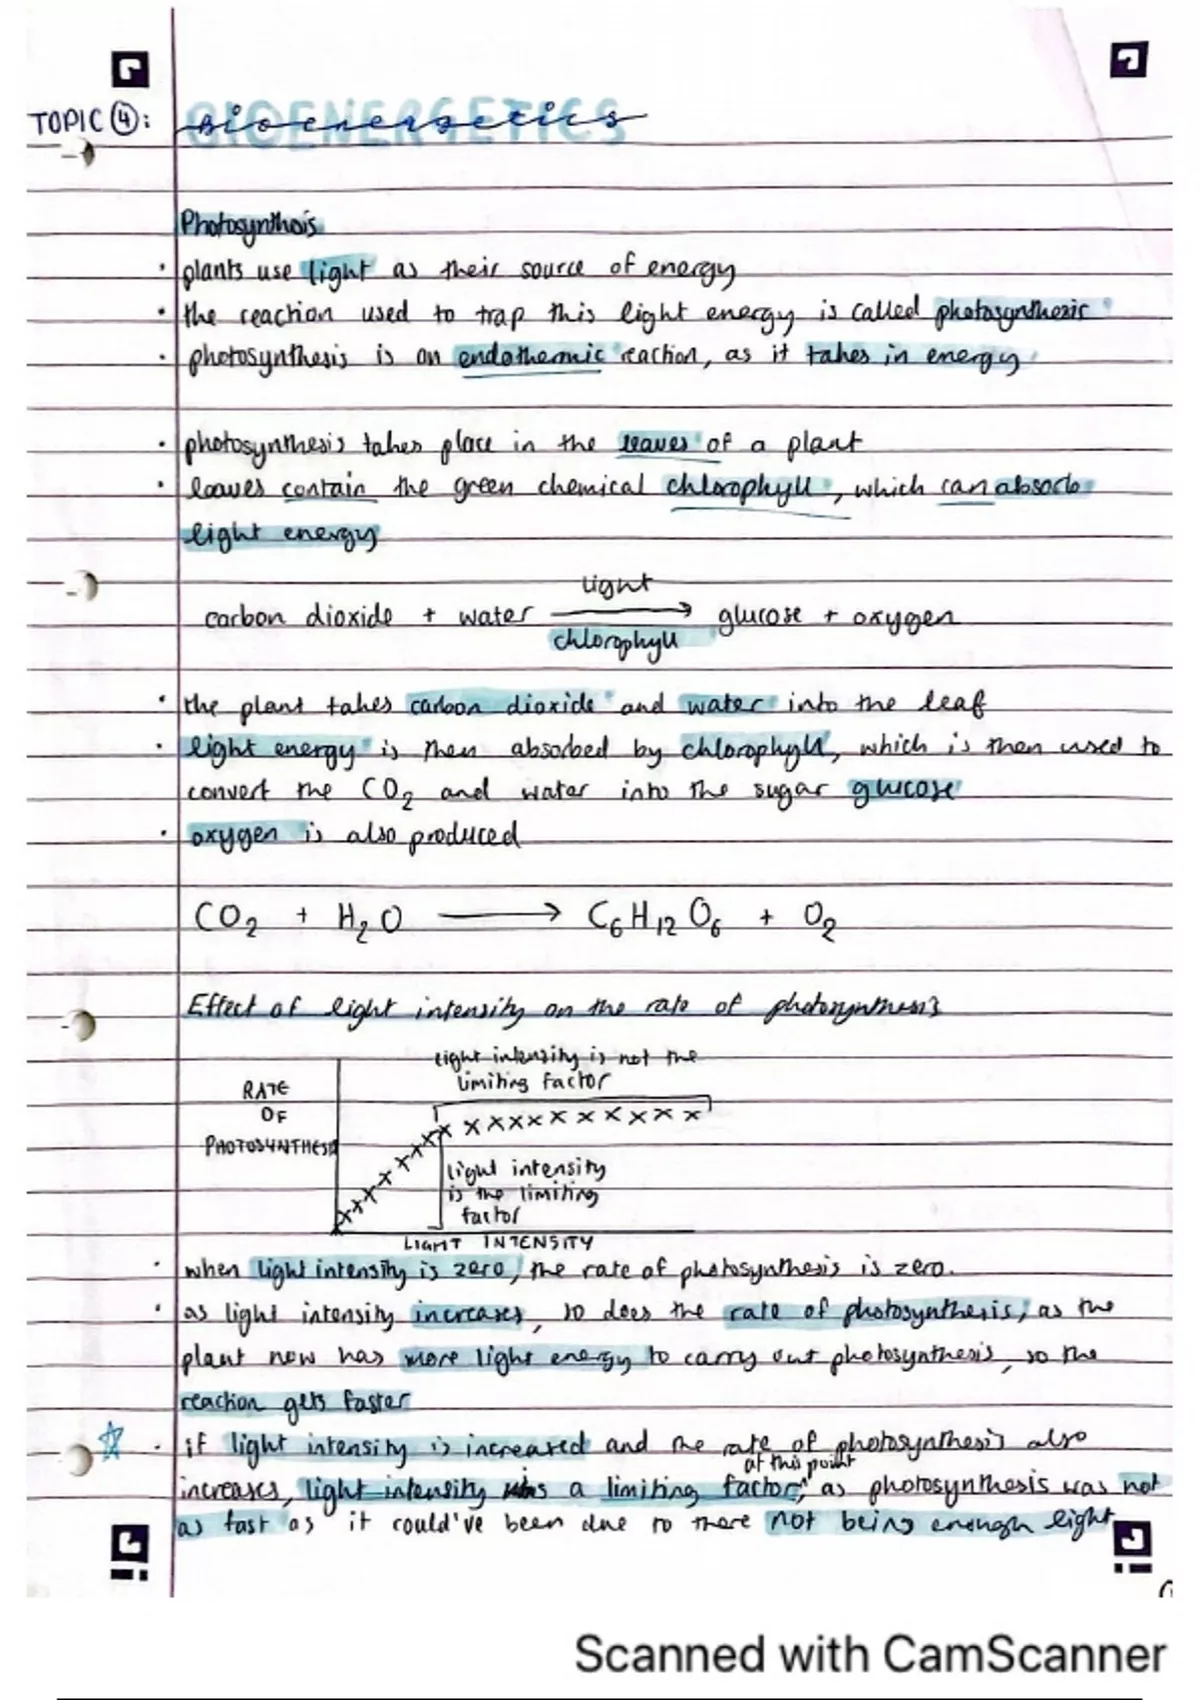 TOPIC ④: BIOENERGETICS
bioenergetics
Photosynthesis
· plants use light as their source of energy
· the reaction used to trap this light energy is called photosynthesis
· photosynthesis is an endothermic reaction, as it takes in energy
· photosynthesis takes place in the leaves of a plant
· leaves contain the green chemical chlorophyll, which can absorb
light energy
light
carbon dioxide + water ⟶ glucose + oxygen
chlorophyll
· the plant takes carbon dioxide and water into the leaf
· light energy is then absorbed by chlorophyll, which is then used to
convert the CO₂ and water into the sugar glucose
· oxygen is also produced
CO₂ + H₂O ⟶ C₆H₁₂O₆ + O₂
Effect of light intensity on the rate of photosynthesis
light intensity is not the
limiting factor
RATE
OF
PHOTOSYNTHESIS
light intensity
is the limiting
factor
LIGHT INTENSITY
· when light intensity is zero, the rate of photosynthesis is zero.
· as light intensity increases, so does the rate of photosynthesis, as the
plant now has more light energy to carry out photosynthesis, so the
reaction gets faster
· if light intensity is increased and the rate of photosynthesis also
at this point
increases, light intensity was a limiting factor, as photosynthesis was not
as fast as it could've been due to there not being enough light
Scanned with CamScanner